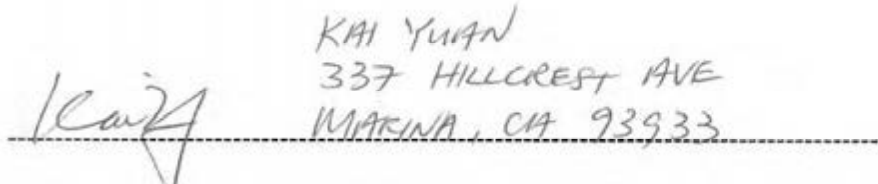 KAI YUAN
337 HILLCREST AVE
MARINA, CA 93933